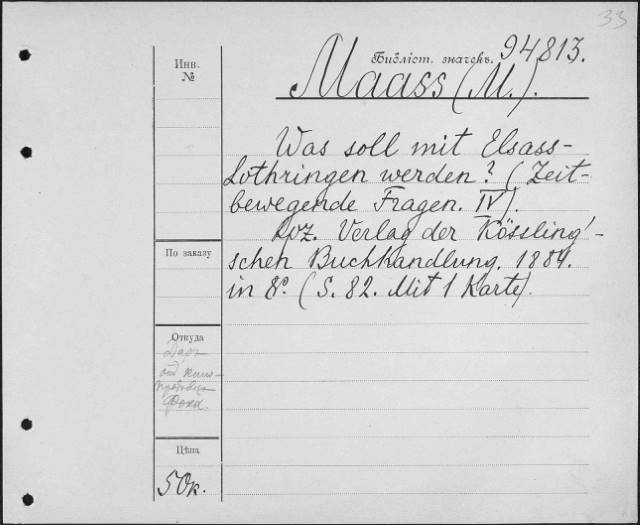 33
Инв.
№
Библіот. значекъ. 94813.
Maass (M.).
Was soll mit Elsass-
Lothringen werden? (Zeit-
bewegende Fragen. IV).
Lpz. Verlag der Kössling'-
schen Buchhandlung. 1884.
in 8º. (S. 82. Mit 1 Karte).
По заказу
Откуда
Даръ
Фонд.
Цѣна
50к.